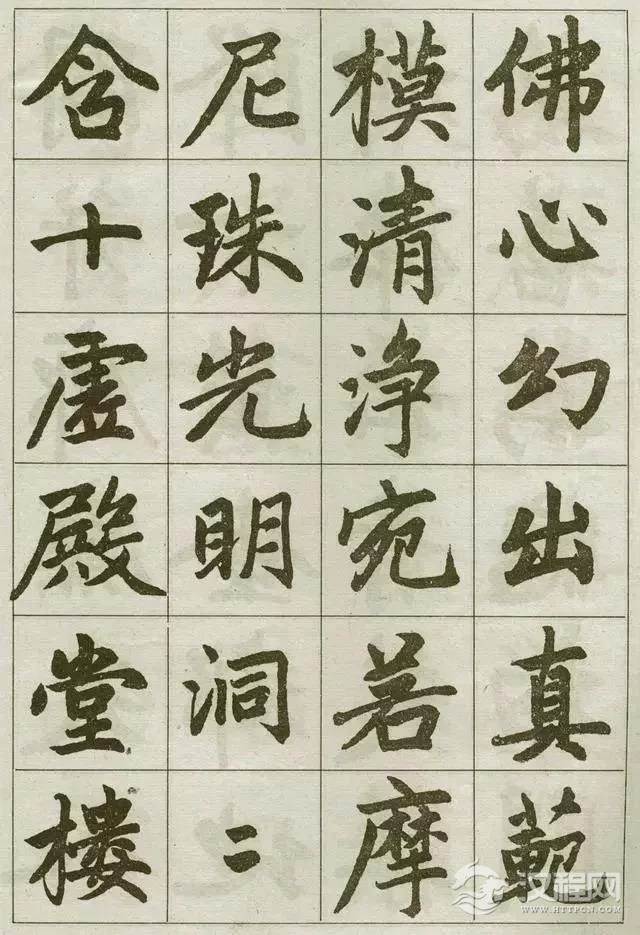 佛心幻出真範
模清浄宛若摩
尼珠光明洞二
含十虛殿堂樓
汉程网
WWW.HTTPCN.COM